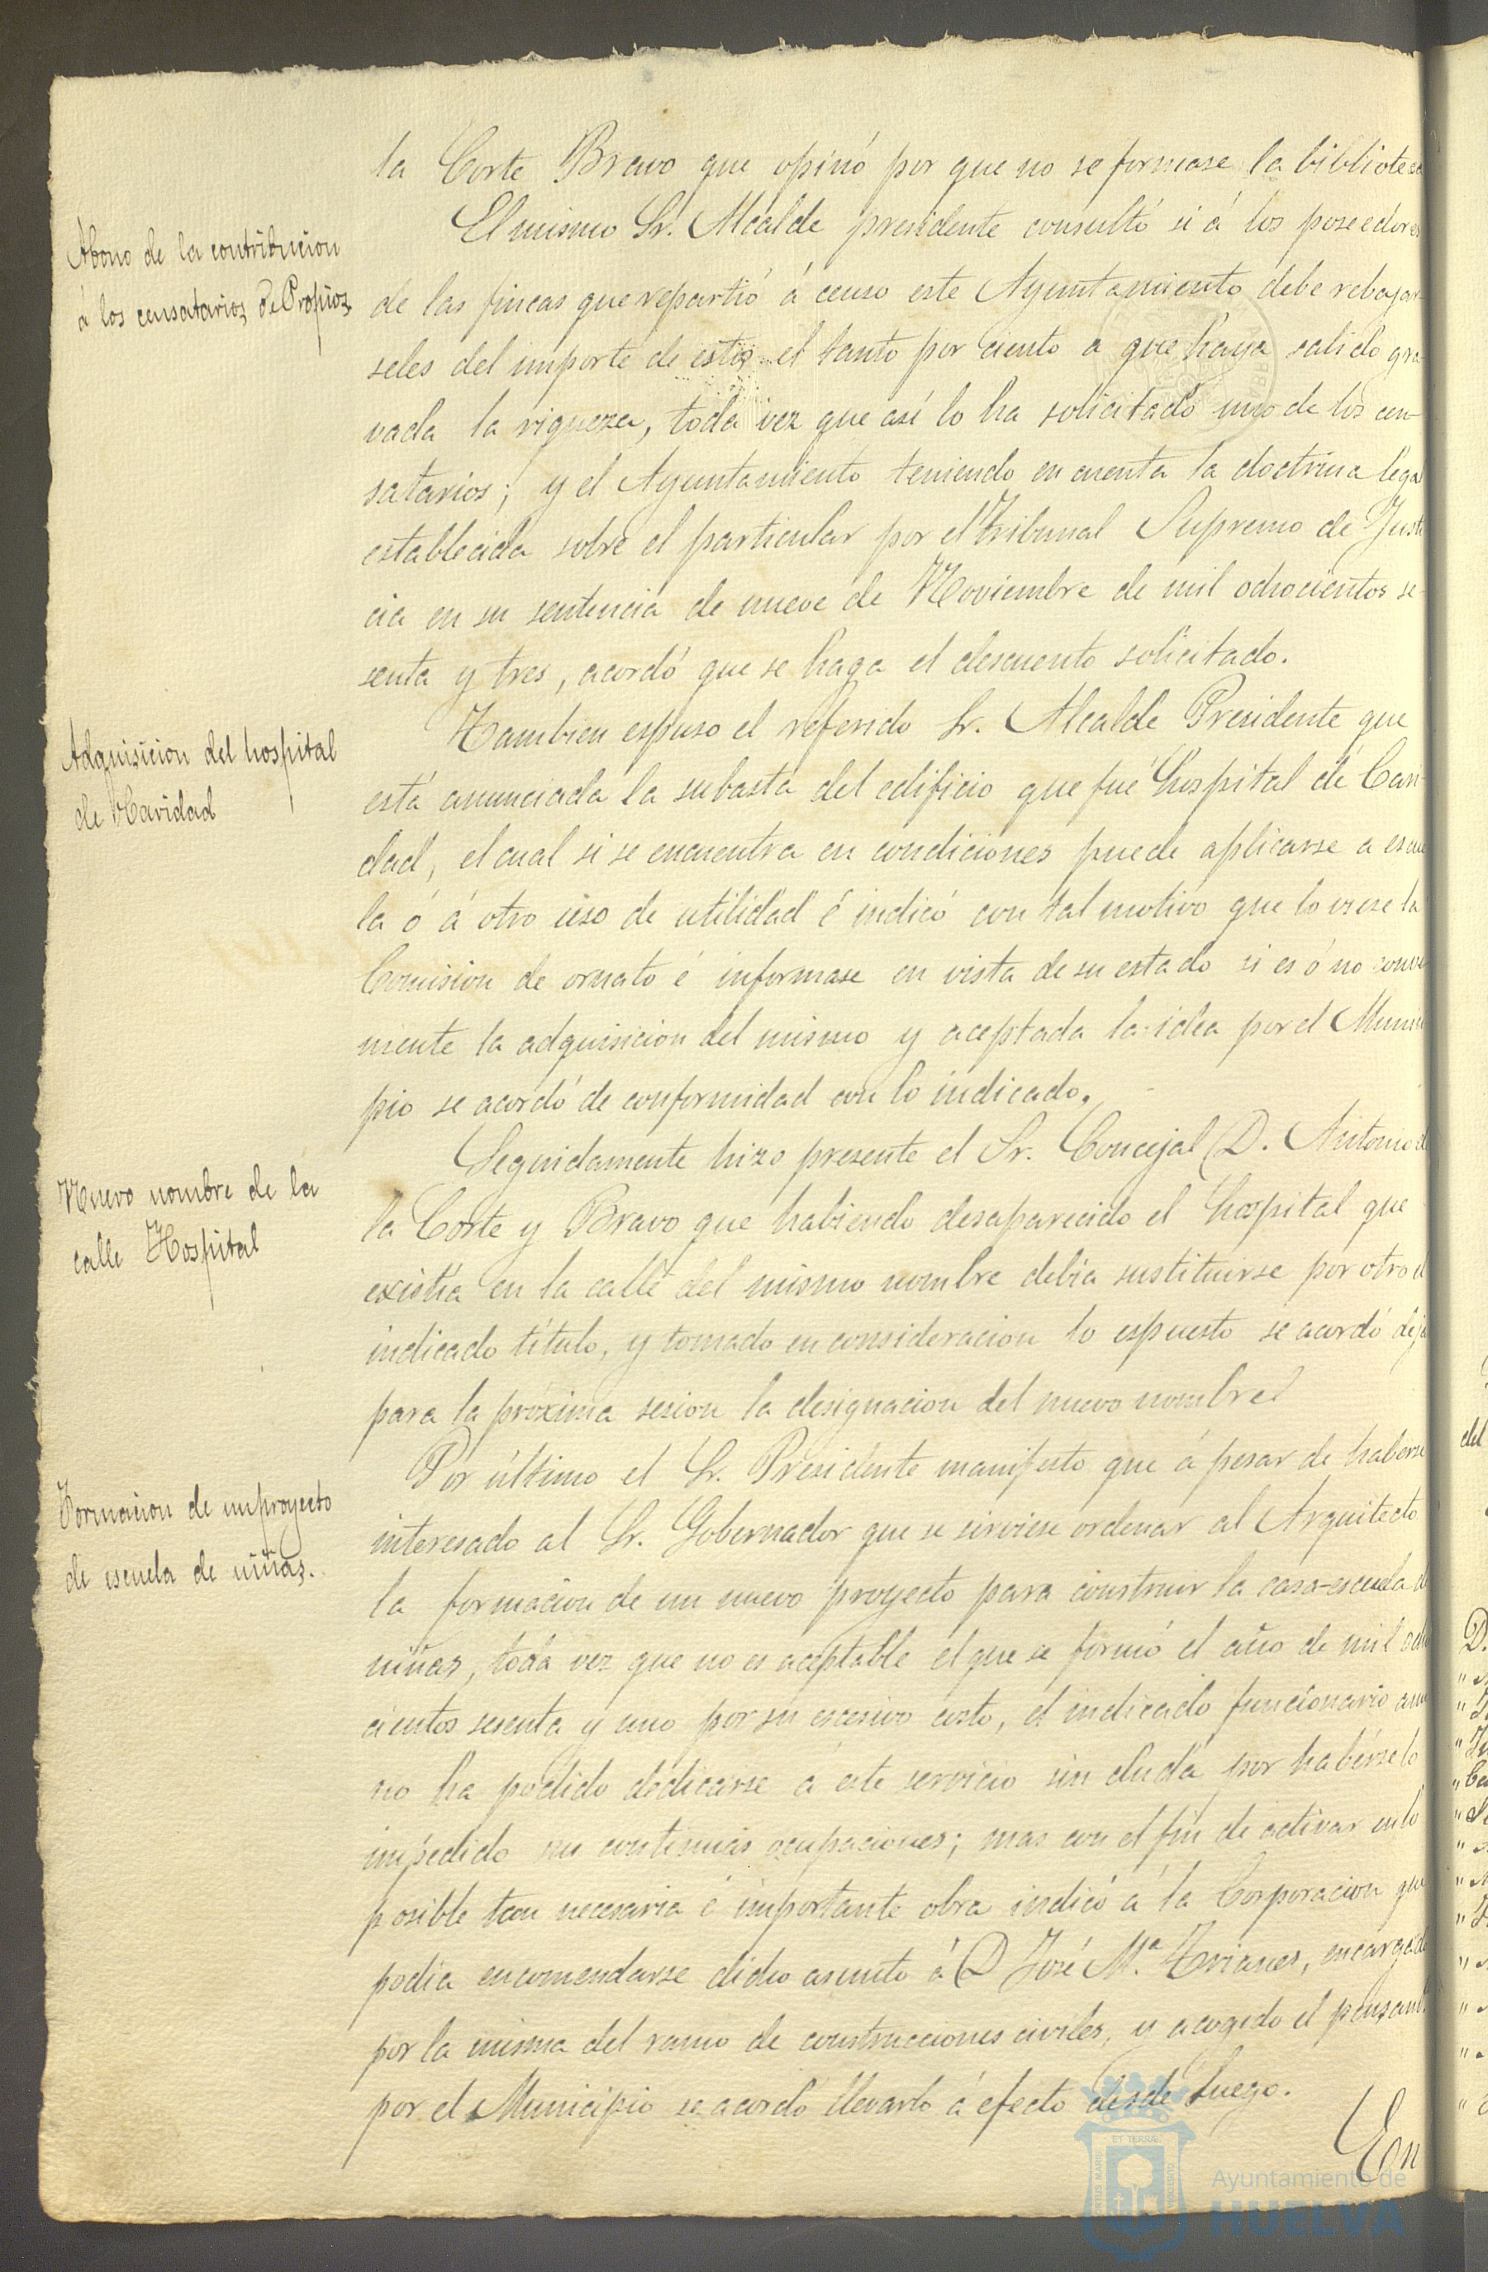 la Corte Bravo que opinó por que no se formase la biblioteca
Abono de la contribucion
á los censatarios de Propios
El mismo Sr. Alcalde presidente consultó si á los poseedores
de las fincas que repartió á censo este Ayuntamiento debe rebajar
seles del importe de estos el tanto por ciento a que haya salido gra
vada la riqueza, toda vez que así lo ha solicitado uno de los cen-
satarios; y el Ayuntamiento teniendo en cuenta la doctrina legal
establecida sobre el particular por el Tribunal Supremo de Justi
cia en su sentencia de nueve de Noviembre de mil ochocientos se-
senta y tres, acordó que se haga el descuento solicitado.
Adquisicion del hospital
de Caridad
Tambien espuso el referido Sr. Alcalde Presidente que
está anunciada la subasta del edificio que fué hospital de Cari
dad, el cual si se encuentra en condiciones puede aplicarse a escue
la ó á otro uso de utilidad é indicó con tal motivo que lo viese la
Comision de ornato é informase en vista de su estado si es ó no conve
niente la adquisicion del mismo y aceptada la idea por el Munici
pio se acordó de conformidad con lo indicado.
Nuevo nombre de la
calle Hospital
Seguidamente hizo presente el Sr. Concejal D. Antonio de
la Corte y Bravo que habiendo desaparecido el hospital que
existia en la calle del mismo nombre debia sustituirse por otro el
indicado título, y tomado en consideracion lo espuesto se acordó dejar
para la próxima sesion la designacion del nuevo nombre.
Formacion de un proyecto
de escuela de niñas.
Por último el Sr. Presidente manifesto que á pesar de haberse
interesado al Sr. Gobernador que se sirviese ordenar al Arquitecto
la formacion de un nuevo proyecto para construir la casa-escuela de
niñas, toda vez que no es aceptable el que se formó el año de mil ocho
cientos sesenta y uno por su escesivo costo, el indicado funcionario aun
no ha podido dedicarse á este servicio sin duda por habérselo
impedido sus continuas ocupaciones; mas con el fin de activar en lo
posible tan necesaria é importante obra indicó á la Corporacion que
podia encomendarse dicho asunto á D José Mª. Trianes, encargado
por la misma del ramo de construcciones civiles, y acogido el pensami
por el Municipio se acordó llevarlo á efecto desde luego.
Con
Ayuntamiento de
HUELVA